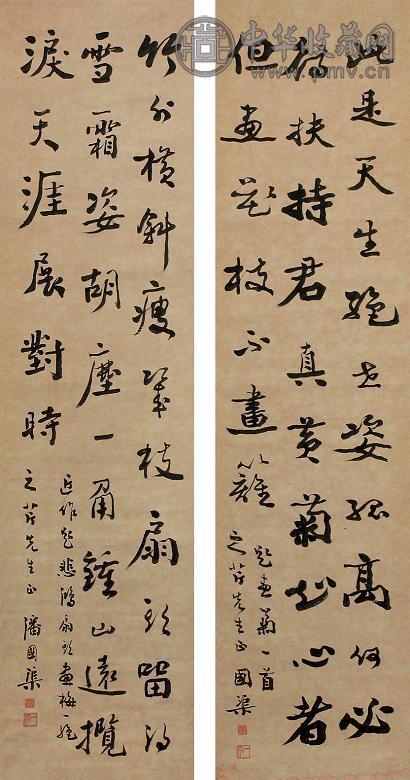 中华收藏网
www.sc001.com.cn
此是天生絕世姿孤高何必
扶持君真黃菊知心者
但畫花枝不畫籬
題畫菊一首
之先生正 國渠
竹外橫斜瘦幾枝扇頭留得
雪霜姿胡塵一角鍾山遠攬
淚天涯展對時
近作題悲鴻扇頭畫梅一絕
之先生正 潘國渠